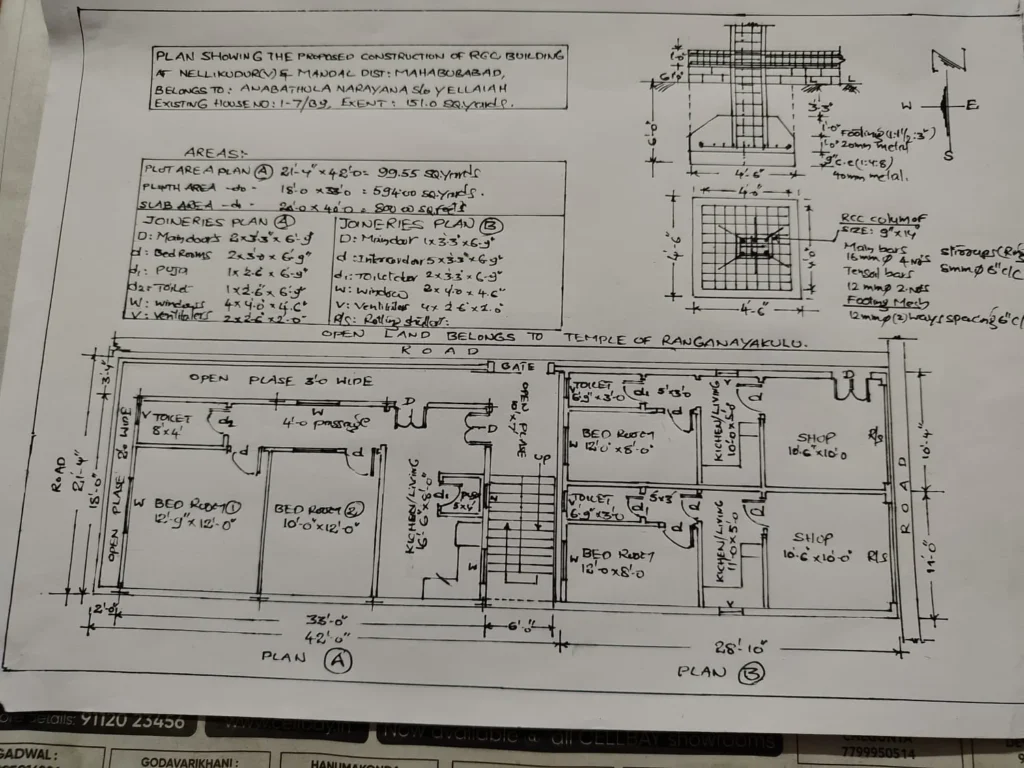 PLAN SHOWING THE PROPOSED CONSTRUCTION OF RCC BUILDING
AT NELLIKUDUR(V) & MANDAL DIST: MAHABUBABAD,
BELONGS TO: ANABATHULA NARAYANA S/o YELLAIAH
EXISTING HOUSE NO: 1-7/B9, EXENT: 151.0 SQ.yards.
AREAS:
PLOT AREA PLAN (A) 21'-4" x 42'-0 = 99.55 SQ.yards
PLINTH AREA -do- 18'-0 x 33'-0 = 594.00 SQ.yards.
SLAB AREA -do- 20'-0 x 40'-0 = 800.00 SQ.feets
JOINERIES PLAN (A)
D: Maindoors 2x3'3" x 6'-9"
d: Bed Rooms 2x3'-0 x 6'-9"
d1: PUJA 1x2'-6 x 6'-9"
d2: Toilet 1x2'-6 x 6'-9"
W: Windows 4x4'-0 x 4'-6"
V: Ventilaters 2x2'-6 x 2'-0"
JOINERIES PLAN (B)
D: Maindoor 1x3'3 x 6'-9"
d: 5x3'3" x 6-9"
d1: Toilet door 2x2'3 x 6-9"
W: Window 2x4'-0 x 4.6"
V: Ventilater 4x 2'-6 x 2'-0"
R/S: Rolling shutter:
6'-0"
3'-3"
1'-0" Footing (1:1 1/2:3")
1'-0" 20mm metal
9" C.C (1:4:8)
40mm metal.
4'-6"
N
W
E
S
4'-0
4'-6"
4'-0
4'-6"
RCC column of
SIZE: 9" x 14"
Main bars
16mm Ø 4 Nos
Tensol bars
12 mm Ø 2 Nos
Footing Mesh
12mm Ø (2) ways spacing 6" c/c
stirrups (Ring
8mm Ø 6" c/c
OPEN LAND BELONGS TO TEMPLE OF RANGANAYAKULU.
ROAD
GATE
OPEN PLASE 3'-0 WIDE
3'-4"
ROAD
21'-4"
18'-0"
OPEN PLASE 2'-0 WIDE
V
TOILET
8'x4'
d2
W
4'-0 passage
D
D
OPEN PLASE
10'x7'
UP
W
d
d
BED ROOM (1)
12'-9" x 12'-0"
BED ROOM (2)
10'-0" x 12'-0"
KICHEN/LIVING
16'-6" x 8'-0"
d1
5'x4'
W
TOILET
6'-9" x 3'-0
d1
5'x3'-0
d
BED ROOM
12'-0" x 8'-0
W
KICHEN/LIVING
V
d
D
SHOP
10'-6" x 10'-0
R/S
10'-4"
ROAD
TOILET
6'-9" x 3'-0
d1
5'x3'
d
d
BED ROOM
12'-0 x 8'-0
W
KICHEN/LIVING
11'-0 x 5'-0
V
SHOP
10'-6" x 10'-0"
R/S
11'-0"
2'-0"
33'-0"
42'-0"
6'-0"
28'-10"
PLAN (A)
PLAN (B)
details: 91120 23456
Now available @ all CELLBAY showrooms
GADWAL:
GODAVARIKHANI:
7799950514